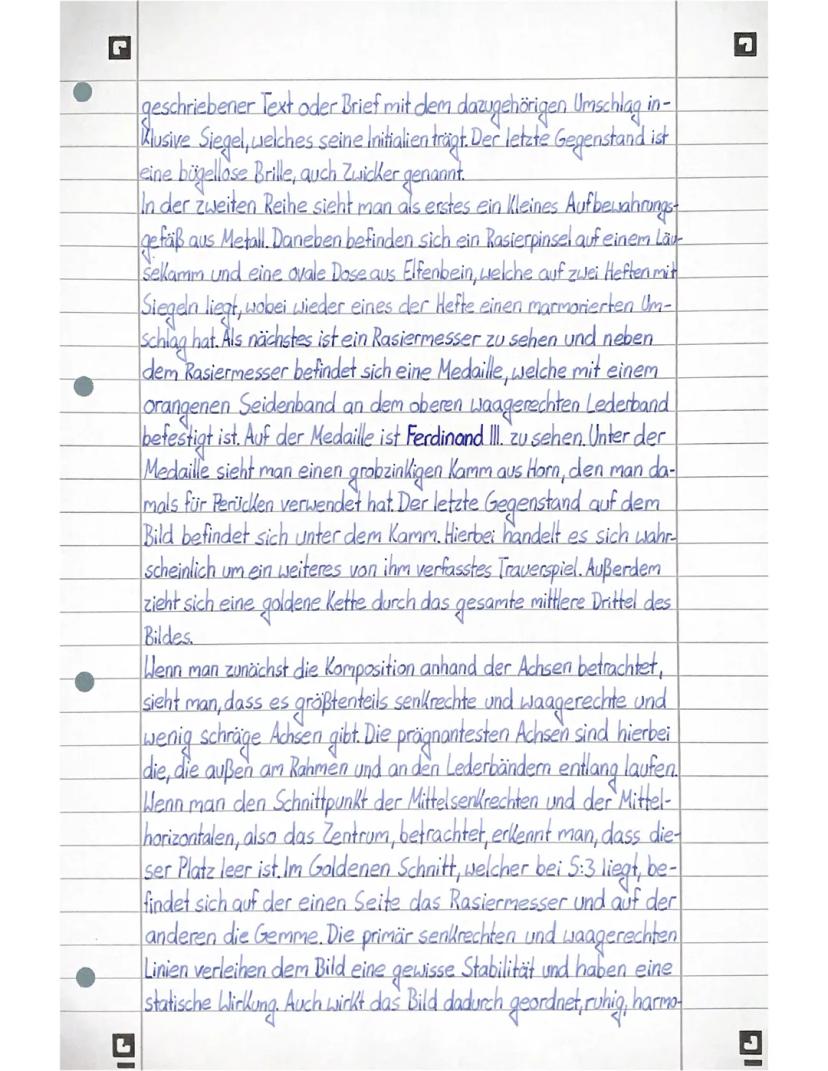 geschriebener Text oder Brief mit dem dazugehörigen Umschlag in-
klusive Siegel, welches seine Initialien trägt. Der letzte Gegenstand ist
eine bügellose Brille, auch Zwicker genannt.
In der zweiten Reihe sieht man als erstes ein kleines Aufbewahrungs-
gefäß aus Metall. Daneben befinden sich ein Rasierpinsel auf einem Läu-
sekamm und eine ovale Dose aus Elfenbein, welche auf zwei Heften mit
Siegeln liegt, wobei wieder eines der Hefte einen marmorierten Um-
schlag hat. Als nächstes ist ein Rasiermesser zu sehen und neben
dem Rasiermesser befindet sich eine Medaille, welche mit einem
orangenen Seidenband an dem oberen waagerechten Lederband
befestigt ist. Auf der Medaille ist Ferdinand III. zu sehen. Unter der
Medaille sieht man einen grobzinkigen Kamm aus Horn, den man da-
mals für Perücken verwendet hat. Der letzte Gegenstand auf dem
Bild befindet sich unter dem Kamm. Hierbei handelt es sich wahr-
scheinlich um ein weiteres von ihm verfasstes Trauerspiel. Außerdem
zieht sich eine goldene Kette durch das gesamte mittlere Drittel des
Bildes.
Wenn man zunächst die Komposition anhand der Achsen betrachtet,
sieht man, dass es größtenteils senkrechte und waagerechte und
wenig schräge Achsen gibt. Die prägnantesten Achsen sind hierbei
die, die außen am Rahmen und an den Lederbändern entlang laufen.
Wenn man den Schnittpunkt der Mittelsenkrechten und der Mittel-
horizontalen, also das Zentrum, betrachtet, erkennt man, dass die-
ser Platz leer ist. Im Goldenen Schnitt, welcher bei 5:3 liegt, be-
findet sich auf der einen Seite das Rasiermesser und auf der
anderen die Gemme. Die primär senkrechten und waagerechten
Linien verleihen dem Bild eine gewisse Stabilität und haben eine
statische Wirkung. Auch wirkt das Bild dadurch geordnet, ruhig, harmo-